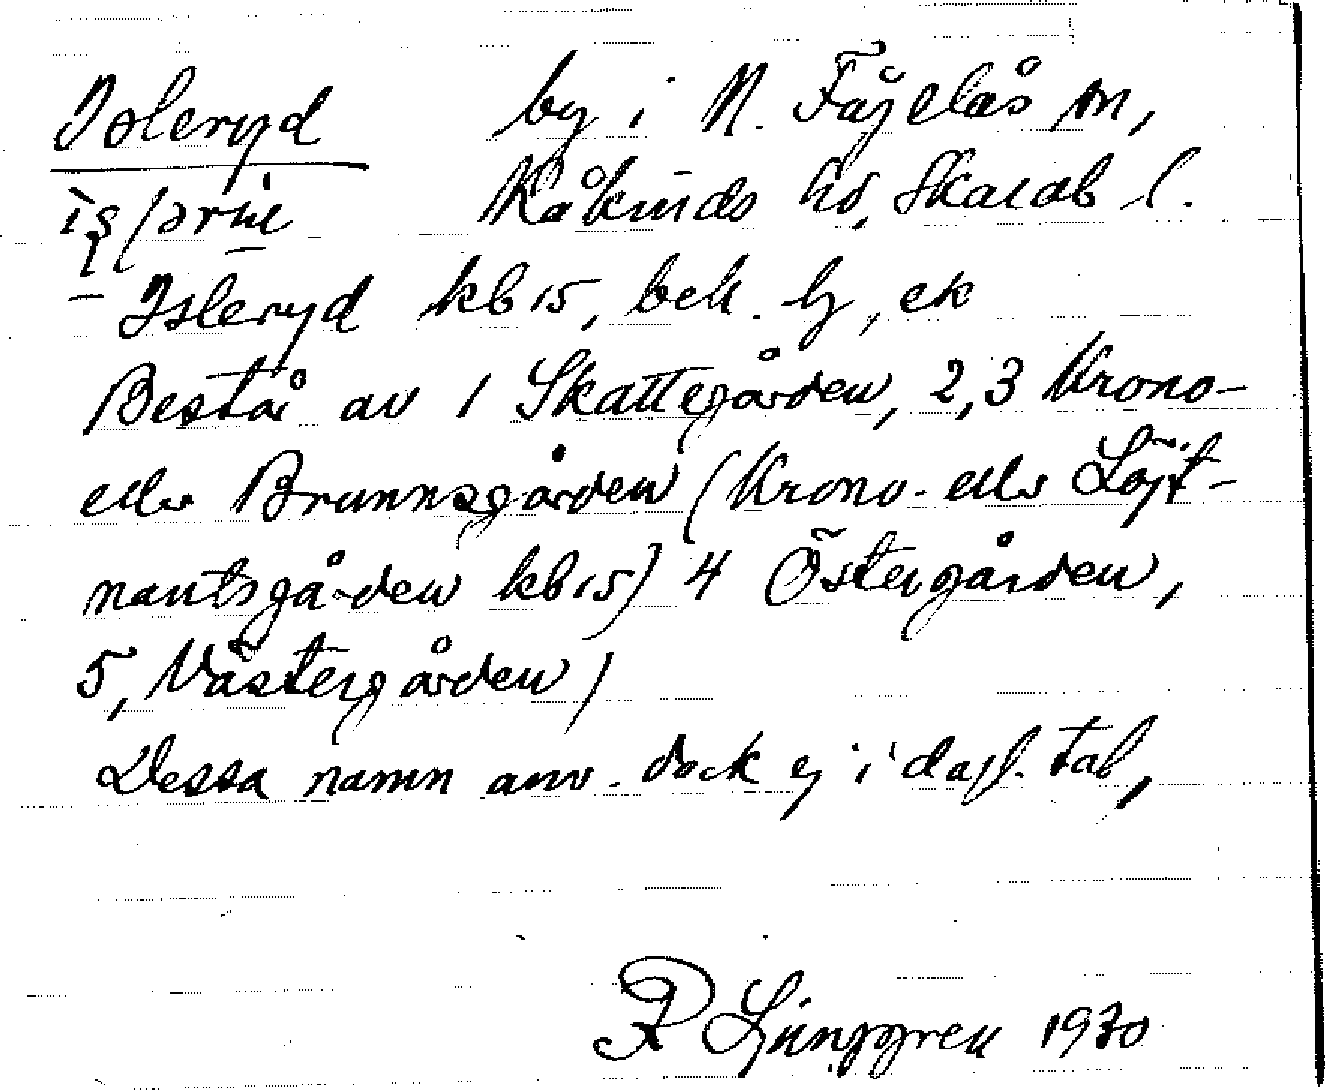 Isleryd by i N. Fågelås sn,
Kåkinds hd, Skarab l.
Isleryd kb 15, bek. by, ek
Består av 1 Skattegården, 2,3 Krono-
eller Brunnsgården (Krono- eller Löjt-
nantsgården kb 15) 4 Östergården,
5, Västergården /
Dessa namn anv. dock ej i dagl. tal,
R Ljunggren 1930